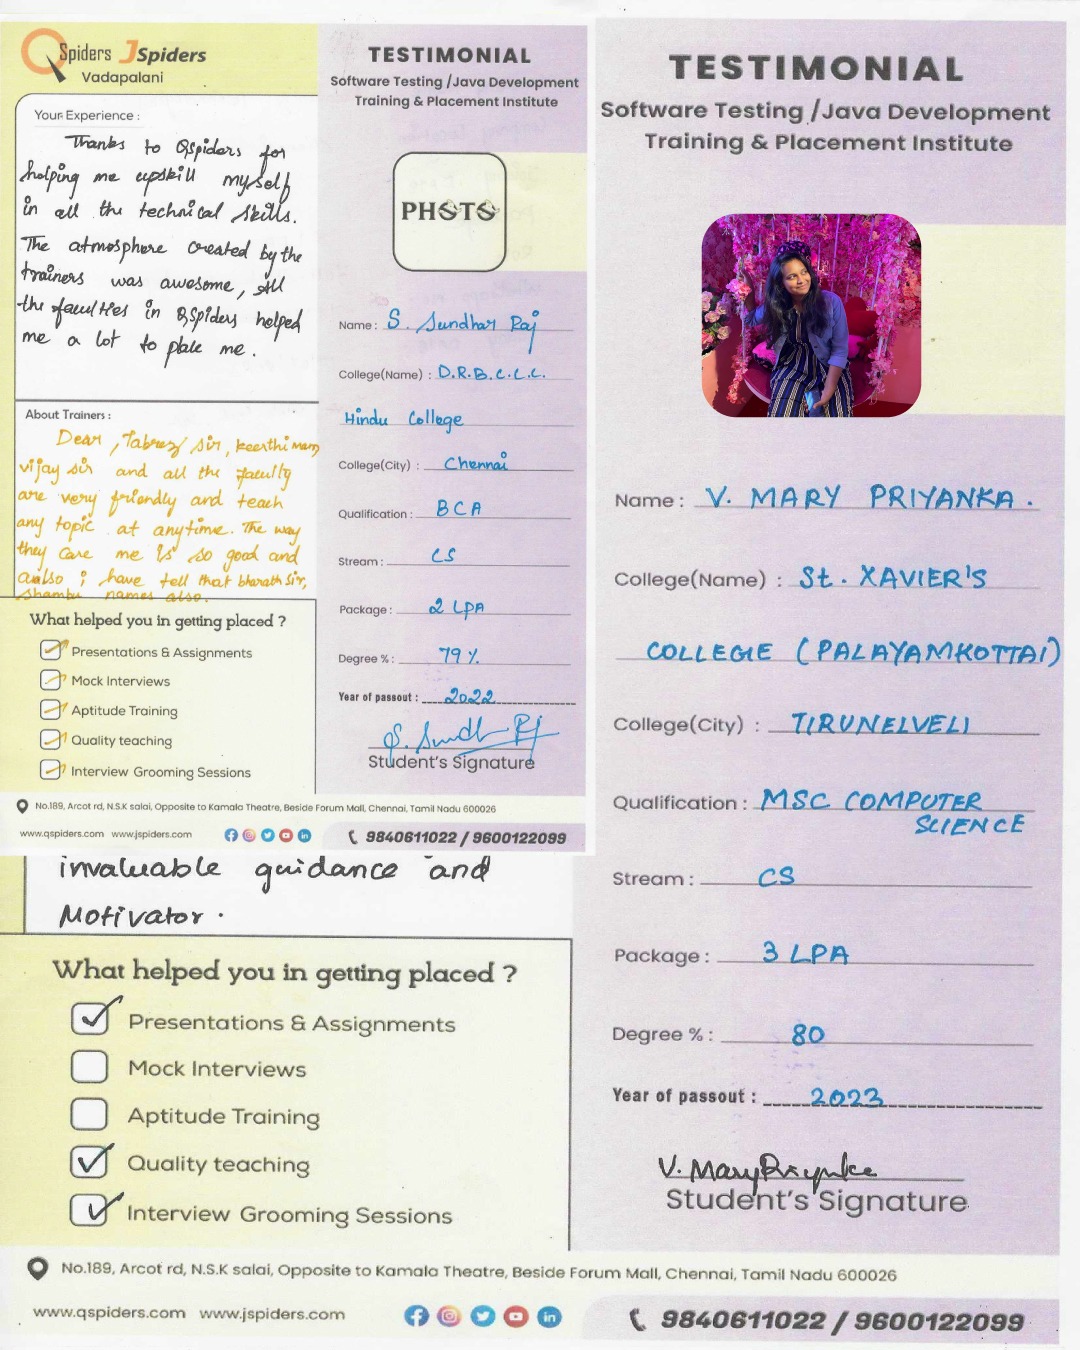 QSpiders JSpiders
Vadapalani
Your Experience :
Thanks to QSpiders for
helping me upskill myself
in all the technical skills.
The atmosphere created by the
trainers was awesome, All
the faculties in QSpiders helped
me a lot to place me.
About Trainers :
Dear, Tabrez sir, keerthi mam
vijay sir and all the faculty
are very friendly and teach
any topic at anytime. The way
they care me is so good and
also i have tell that bharath sir,
shambu names also.
What helped you in getting placed ?
Presentations & Assignments
Mock Interviews
Aptitude Training
Quality teaching
Interview Grooming Sessions
TESTIMONIAL
Software Testing /Java Development
Training & Placement Institute
PHOTO
Name : S. Sundhar Raj
College(Name) : D.R.B.C.C.C.
Hindu College
College(City) : Chennai
Qualification : BCA
Stream : CS
Package : 2 LPA
Degree % : 79 %
Year of passout : 2022
S. Sundh Rj
Student's Signature
No.189, Arcot rd, N.S.K salai, Opposite to Kamala Theatre, Beside Forum Mall, Chennai, Tamil Nadu 600026
www.qspiders.com www.jspiders.com
9840611022 / 9600122099
TESTIMONIAL
Software Testing /Java Development
Training & Placement Institute
Name : V. MARY PRIYANKA .
College(Name) : St. XAVIER'S
COLLEGE (PALAYAMKOTTAI)
College(City) : TIRUNELVELI
Qualification : MSC COMPUTER
SCIENCE
Stream : CS
Package : 3 LPA
Degree % : 80
Year of passout : 2023
V. MaryPriynka
Student's Signature
invaluable guidance and
Motivator .
What helped you in getting placed ?
Presentations & Assignments
Mock Interviews
Aptitude Training
Quality teaching
Interview Grooming Sessions
No.189, Arcot rd, N.S.K salai, Opposite to Kamala Theatre, Beside Forum Mall, Chennai, Tamil Nadu 600026
www.qspiders.com www.jspiders.com
9840611022 / 9600122099